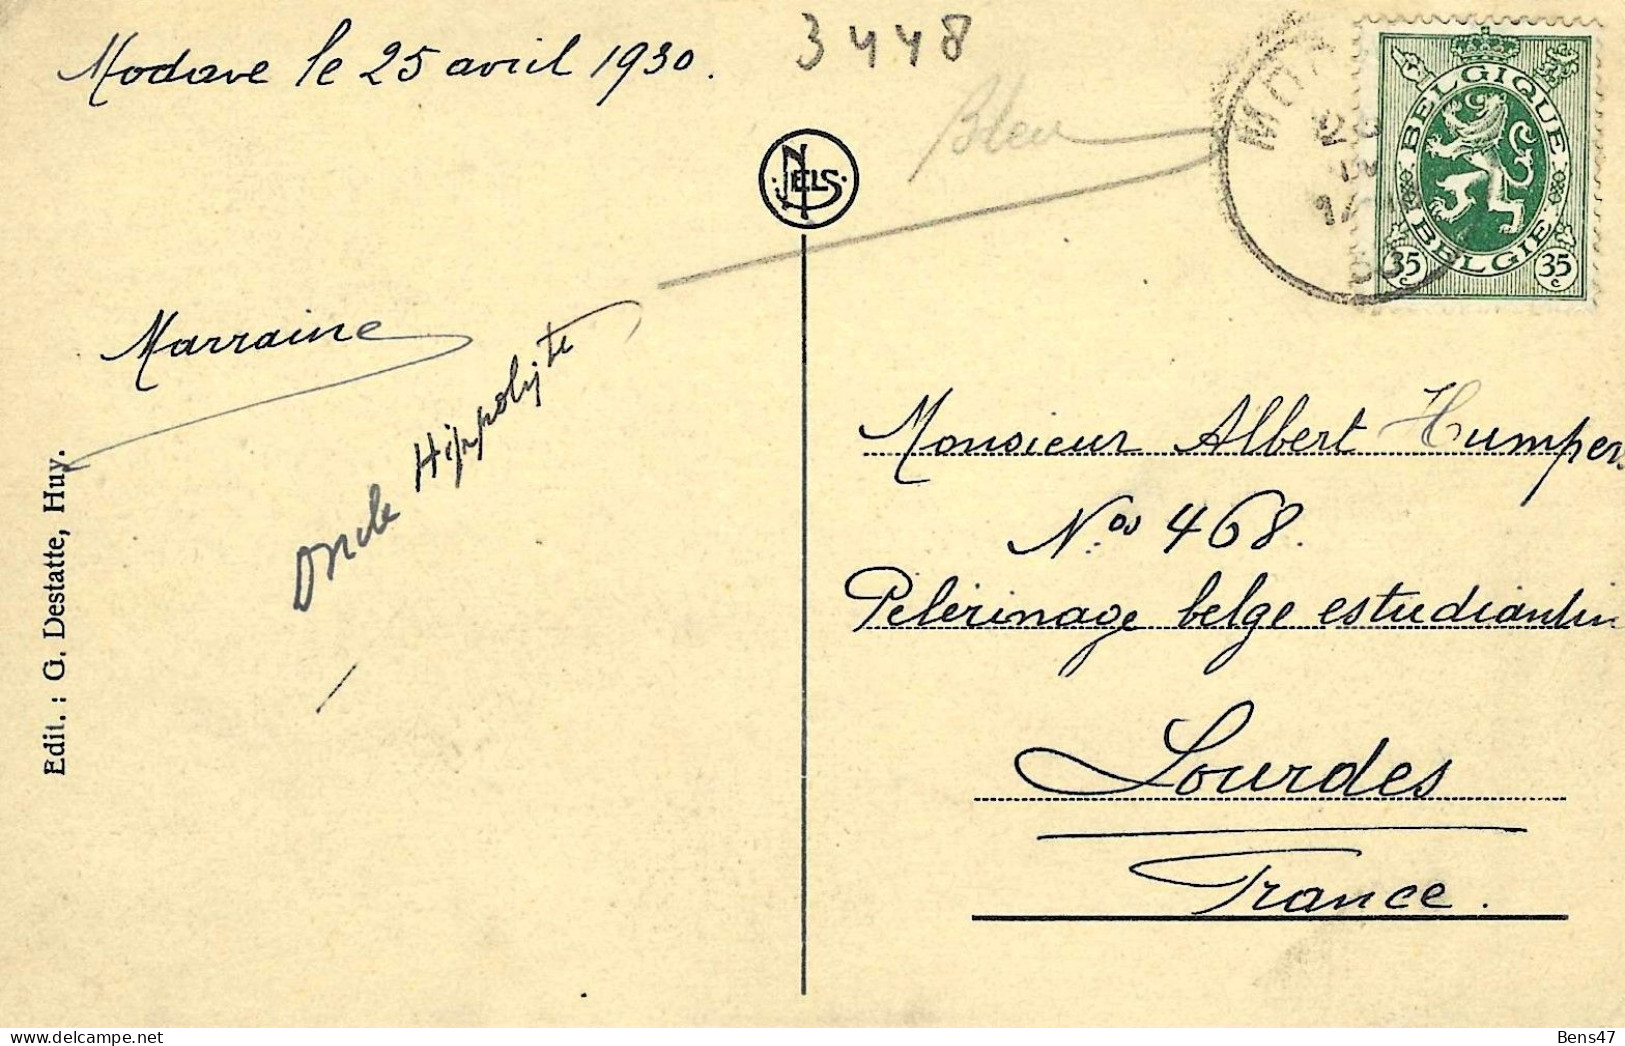 Modave le 25 avril 1930.
3448
Bleu
NELS
BELGIQUE
BELGIE
35 c
35 c
Marraine
Oncle Hippolyte
Monsieur Albert Humpers
Nos 468.
Pelérinage belge estudiantin
Lourdes
France.
Edit. : G. Destatte, Huy.
Bens47